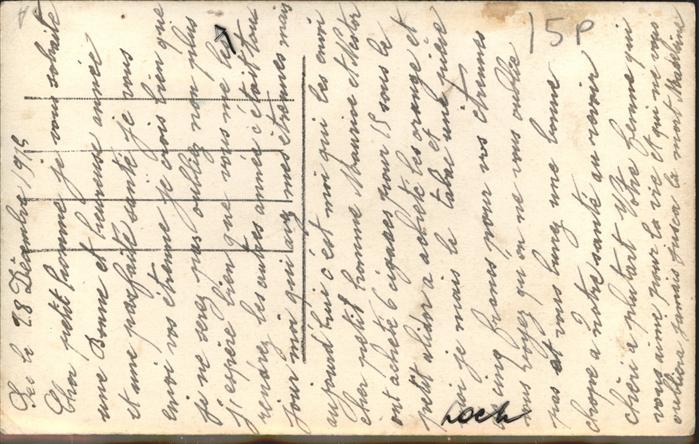 le 28 Décembre 1915
Cher petit homme je vous souhaite
une Bonne et heureuse année
et une parfaite santé je vous
envoi vos étrenne je crois bien que
je ne serez pas oubliez non plus
j'espère bien que vous me les
rendrez les autres année c'était tou
jour moi qui larez mes étrennes mais
aujourd'hui c'est moi qui les envoi
cher petit homme Maurice et Nestor
ont acheté 6 cigares pour 15 sous le
petit a acheté les orange et
moi je mais le tabac une pièce
cinq francs pour vos étrennes
vous voyez qu'on ne vous oublie
pas et vous burez une bonne
chope a notre santé au revoir
chéri a plu tart Votre femme qui
vous aime pour la vie et qui ne vous
oubliera jamais jusca la mort Madeleine
15P
Loch